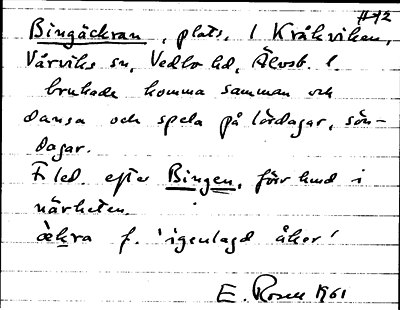 #12
Bingäckran, plats. I Kråkviken,
Vårviks sn, Vedbo hd, Älvsb. l.
brukade komma samman och
dansa och spela på lördagar, sön-
dagar.
F led. efter Bingen, förr hmd i
närheten.
äkra f. 'igenlagd åker'
E. Rosen 1961